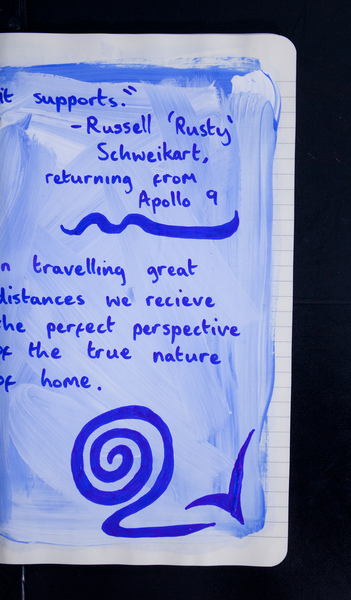 it supports."
-Russell 'Rusty'
Schweikart,
returning from
Apollo 9
n travelling great
distances we recieve
the perfect perspective
of the true nature
of home.